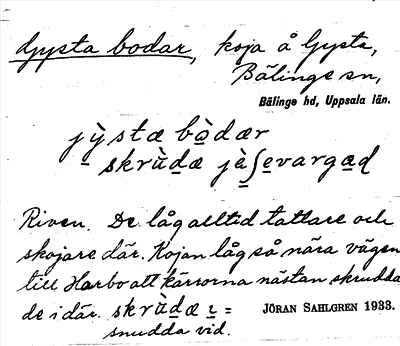 Gysta bodar, koja å Gysta,
Bälinge sn,
Bälinge hd, Uppsala län.
jỳ̖stæ bò̠dær
skrù̠d̠æ jæ̠̀ʃe̠varga̠d
Riven. De låg alltid tattare och
skojare där. Kojan låg så nära vägen
till Harbo att kärrorna nästan skrudda
de i där. skrù̠d̠æ ı̠ =
snudda vid.
JÖRAN SAHLGREN 1933.